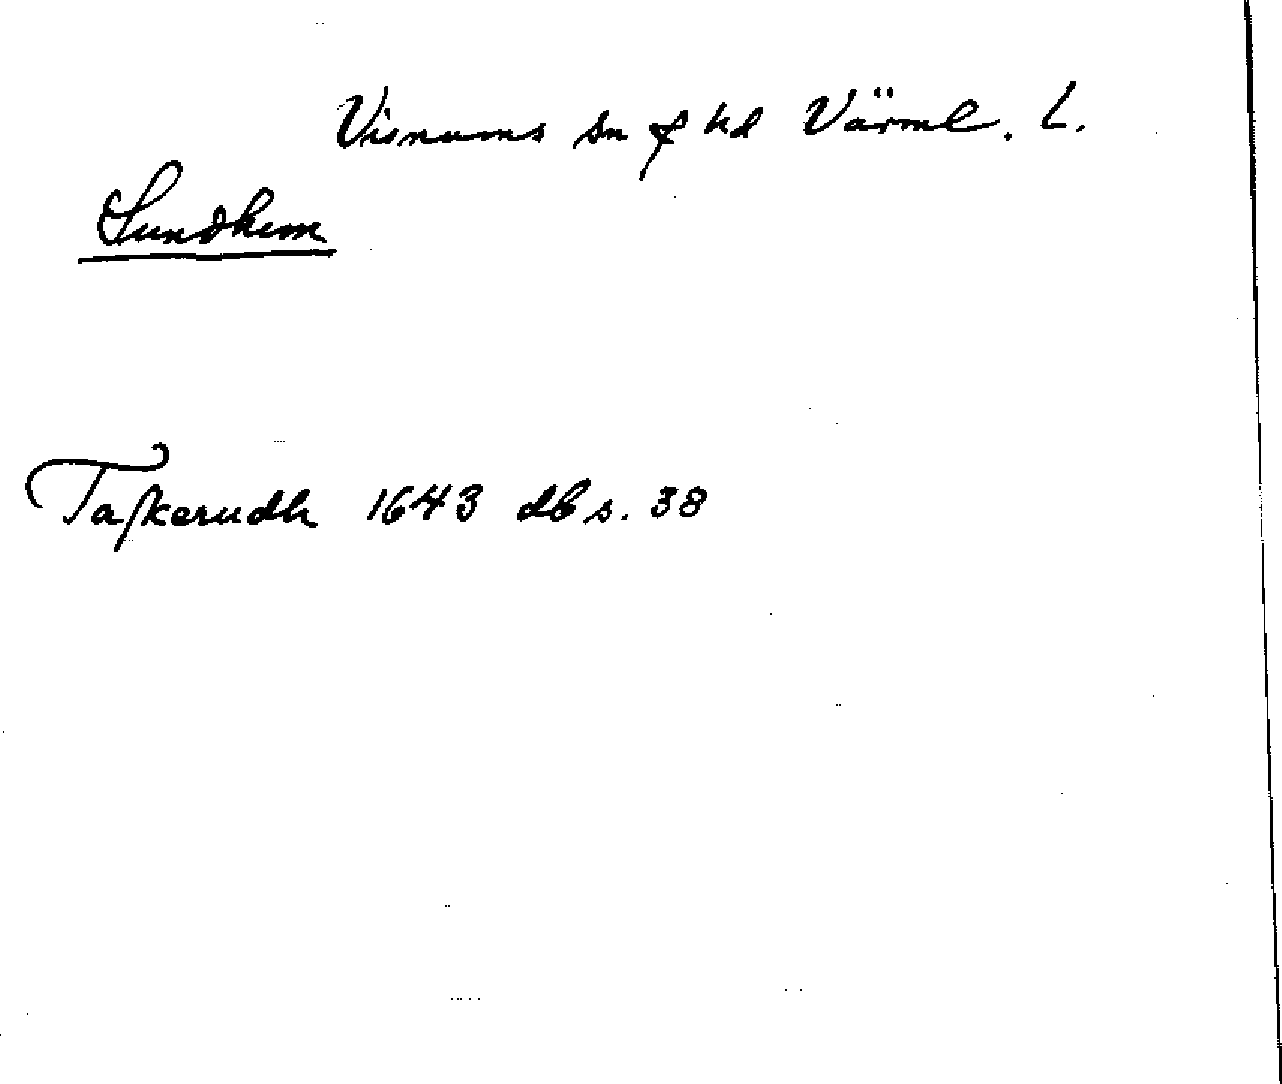 Visnums sn o hd Värml. L.
Sundhem
Taſkerudh 1643 db s. 38